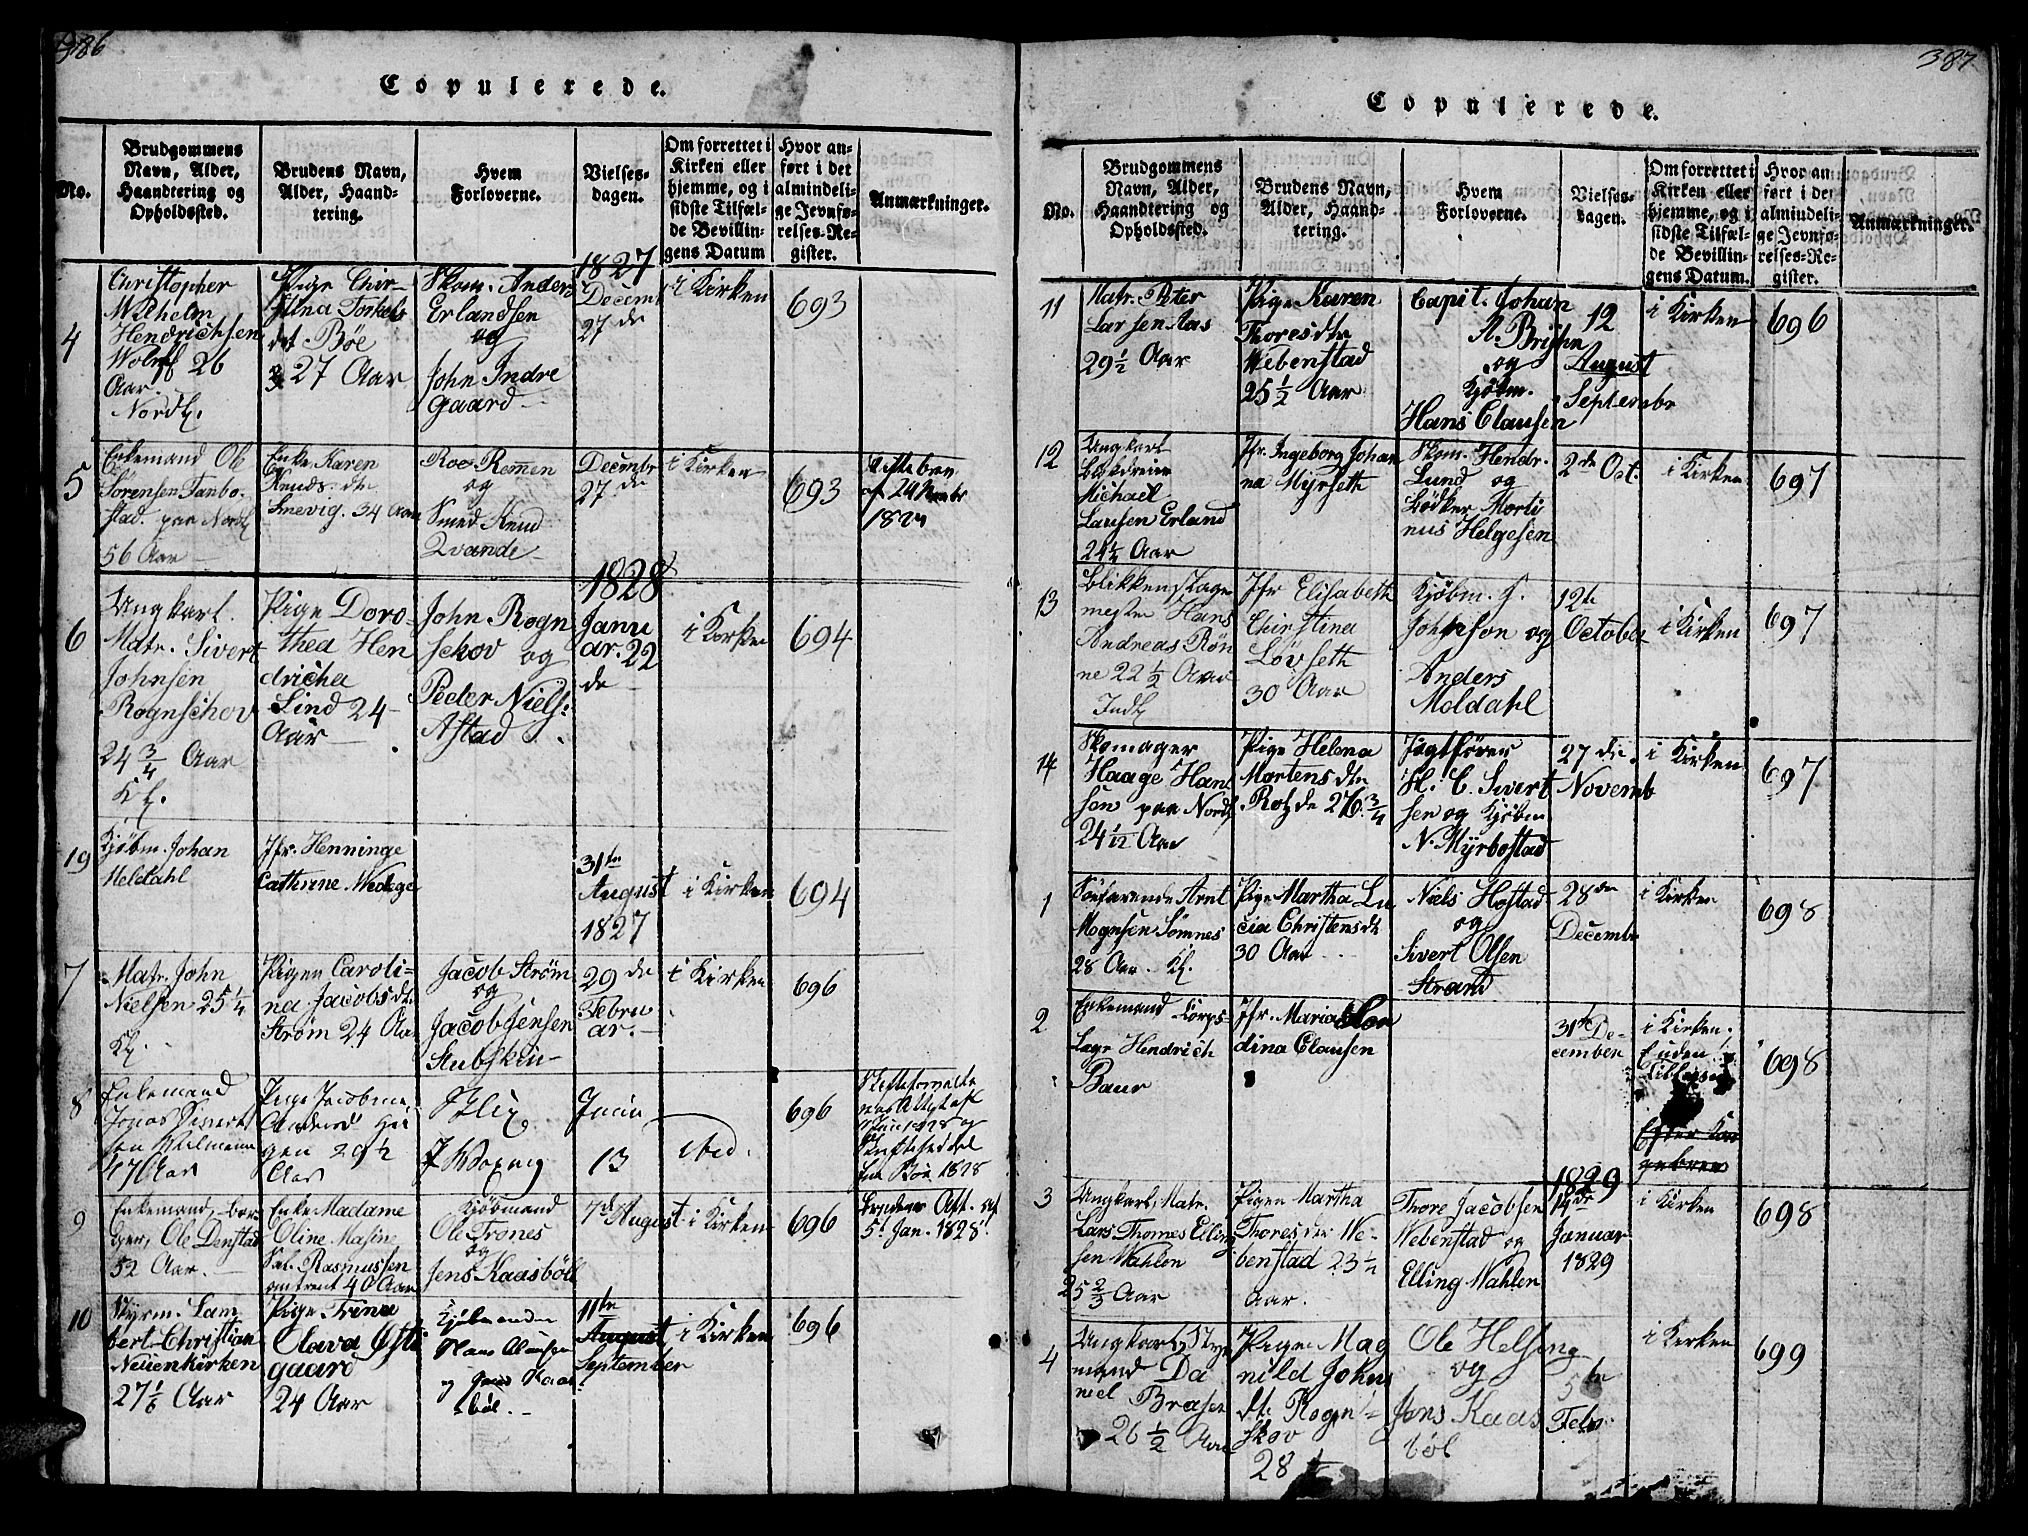 386
Copulerede.
No.
Brudgommens
Navn, Alder,
Haandtering og
Opholdssted.
Brudens Navn,
Alder, Haand-
tering.
Hvem
Forloverne.
Vielses-
dagen.
Om forrettet i
Kirken eller
hjemme, og i
sidste Tilfæl-
de Bevillin-
gens Datum
Hvor an-
ført i det
almindeli-
ge Jevnfø-
relses-Re-
gister.
Anmærkninger.
4
Christopher
Wilhelm
Hendrichsen
26
Aar
Nordl.
Pige
Torkels
dtr Böe
27 Aar
Skom. Anders
Erlandsen
og
John Indre
gaard
1827
Decemb
27 de
i Kirken
693
5
Enkemand Ole
Sörensen Tanbo-
stad. paa Nordl
56 Aar
Enke Karen
Knuds-dtr
Smevig. 34 Aar
Roe Remen
og
Smed Knud
Qvande
Decembr
27 de
i Kirken
693
Skiftebrev
af 24 Novbr
6
Ungkarl.
Matr. Sivert
Johnsen
Rognschov
24 3/4 Aar
Kl.
Pige Doro-
thea Hen
dricha
Lind 24
Aar
John Rogn
schov og
Peder Niels:
Astad
1828
Janu
ar. 22
de
i Kirken
694
19
Kjöbm. Johan
Meldahl
Jfr. Henninge
Cathrine Wedege
31te
August
1827
i Kirken
694
7
Matr. John
Nielsen 25 1/4
Kl.
Pigen Caroli-
na Jacobsdtr
Ström 24 Aar
Jacob Ström
og
Jacob Jensen
Stubskin
29 de
Febru
ar.
i Kirken
696
8
Enkemand
Jonas Sivert
sen
47 Aar
Pige
gen 29 1/2
Aar
Juni
13
ibid.
696
1828 og
Böe 1828
9
Enkemand, bor
ger, Ole Denstad
52 Aar.
Enke Madame
Oline Masine
Sal. Rasmussen
omtrent 40 Aar
Kjöbmand
Ole Trones
og
Jens Kaasböll
7de August
i Kirken
696
Att. af
5t Jan. 1828
10
Styrm. Lam
bert Christian
Neuenkirken
27 1/6 Aar
Pige Trine
Olava
gaard
24 Aar
Kjöbmænden
Hans Clausen
og Jens Kaas
böl.
11te
August
September
i Kirken
696
387
Copulerede.
No.
Brudgommens
Navn, Alder,
Haandtering og
Opholdssted.
Brudens Navn,
Alder, Haand-
tering.
Hvem
Forloverne.
Vielses-
dagen.
Om forrettet i
Kirken eller
hjemme, og i
sidste Tilfæl-
de Bevillin-
gens Datum.
Hvor an
ført i det
almindeli-
ge Jevnfø-
relses-Re-
gister.
Anmærkninger.
11
Matr. Peter
Larsen Aas
29 1/2 Aar
Pige Karen
Thoresdtr
Webenstad
25 1/2 Aar
Capit. Johan
A.
og
Kjöbm.
Hans Clausen
12
August
Septembr
i Kirken
696
12
Ungkarl
Michael
Larsen Erland
24 1/4 Aar
Jfr. Ingeborg Johan
na Myrseth
Skom. Hendr.
Lund og
Bödker Morti
nus Helgesen
2de Oct.
i Kirken
697
13
Blikkenslager
mester Hans
Andreas Rön
ne 22 1/2 Aar
Indl.
Jfr Elisabeth
Christina
Lövseth
30 Aar
Kjöbm. J.
Johnson og
Anders
Moldahl
12te
October
i Kirken
697
14
Skomager
Haage Han
sen paa Nordl
24 1/12 Aar
Pige Helena
Mortensdtr
26 3/4
Jægtfører
H. C. Sivert
sen og Kjöbm
N. Myrbostad
27 de
Novemb
i Kirken
697
1
Söefarende Arnt
Mognsen Sömnes
28 Aar. Kl.
Pige Martha Lu
cia Christensdtr
30 Aar
Niels Hostad
og
Sivert Olsen
Strand
28 de
Decembr
i Kirken
698
2
Enkemand Corps-
Læge Hendrich
Baur
Jfr. Maria
dina Clausen
31te De-
cember
i Kirken
uden
698
3
Ungkarl, Matr.
Lars Thomas Elling
sen Wahlen
25 2/3 Aar
Pigen Martha
Thoresdtr We-
benstad 23 1/2
Aar.
Thore Jacobsen
Webenstad og
Elling Wahlen
1829
14de
Januar
1829
i Kirken
698
4
Ungkarl, Styr
mand Da
niel Brasen
26 1/2 Aar
Pigen Mag
nild Johns
dtr Rogn
skov
28
Ole Helsing
og
Jens Kaas
böl
5te
Febr
i Kirken
699